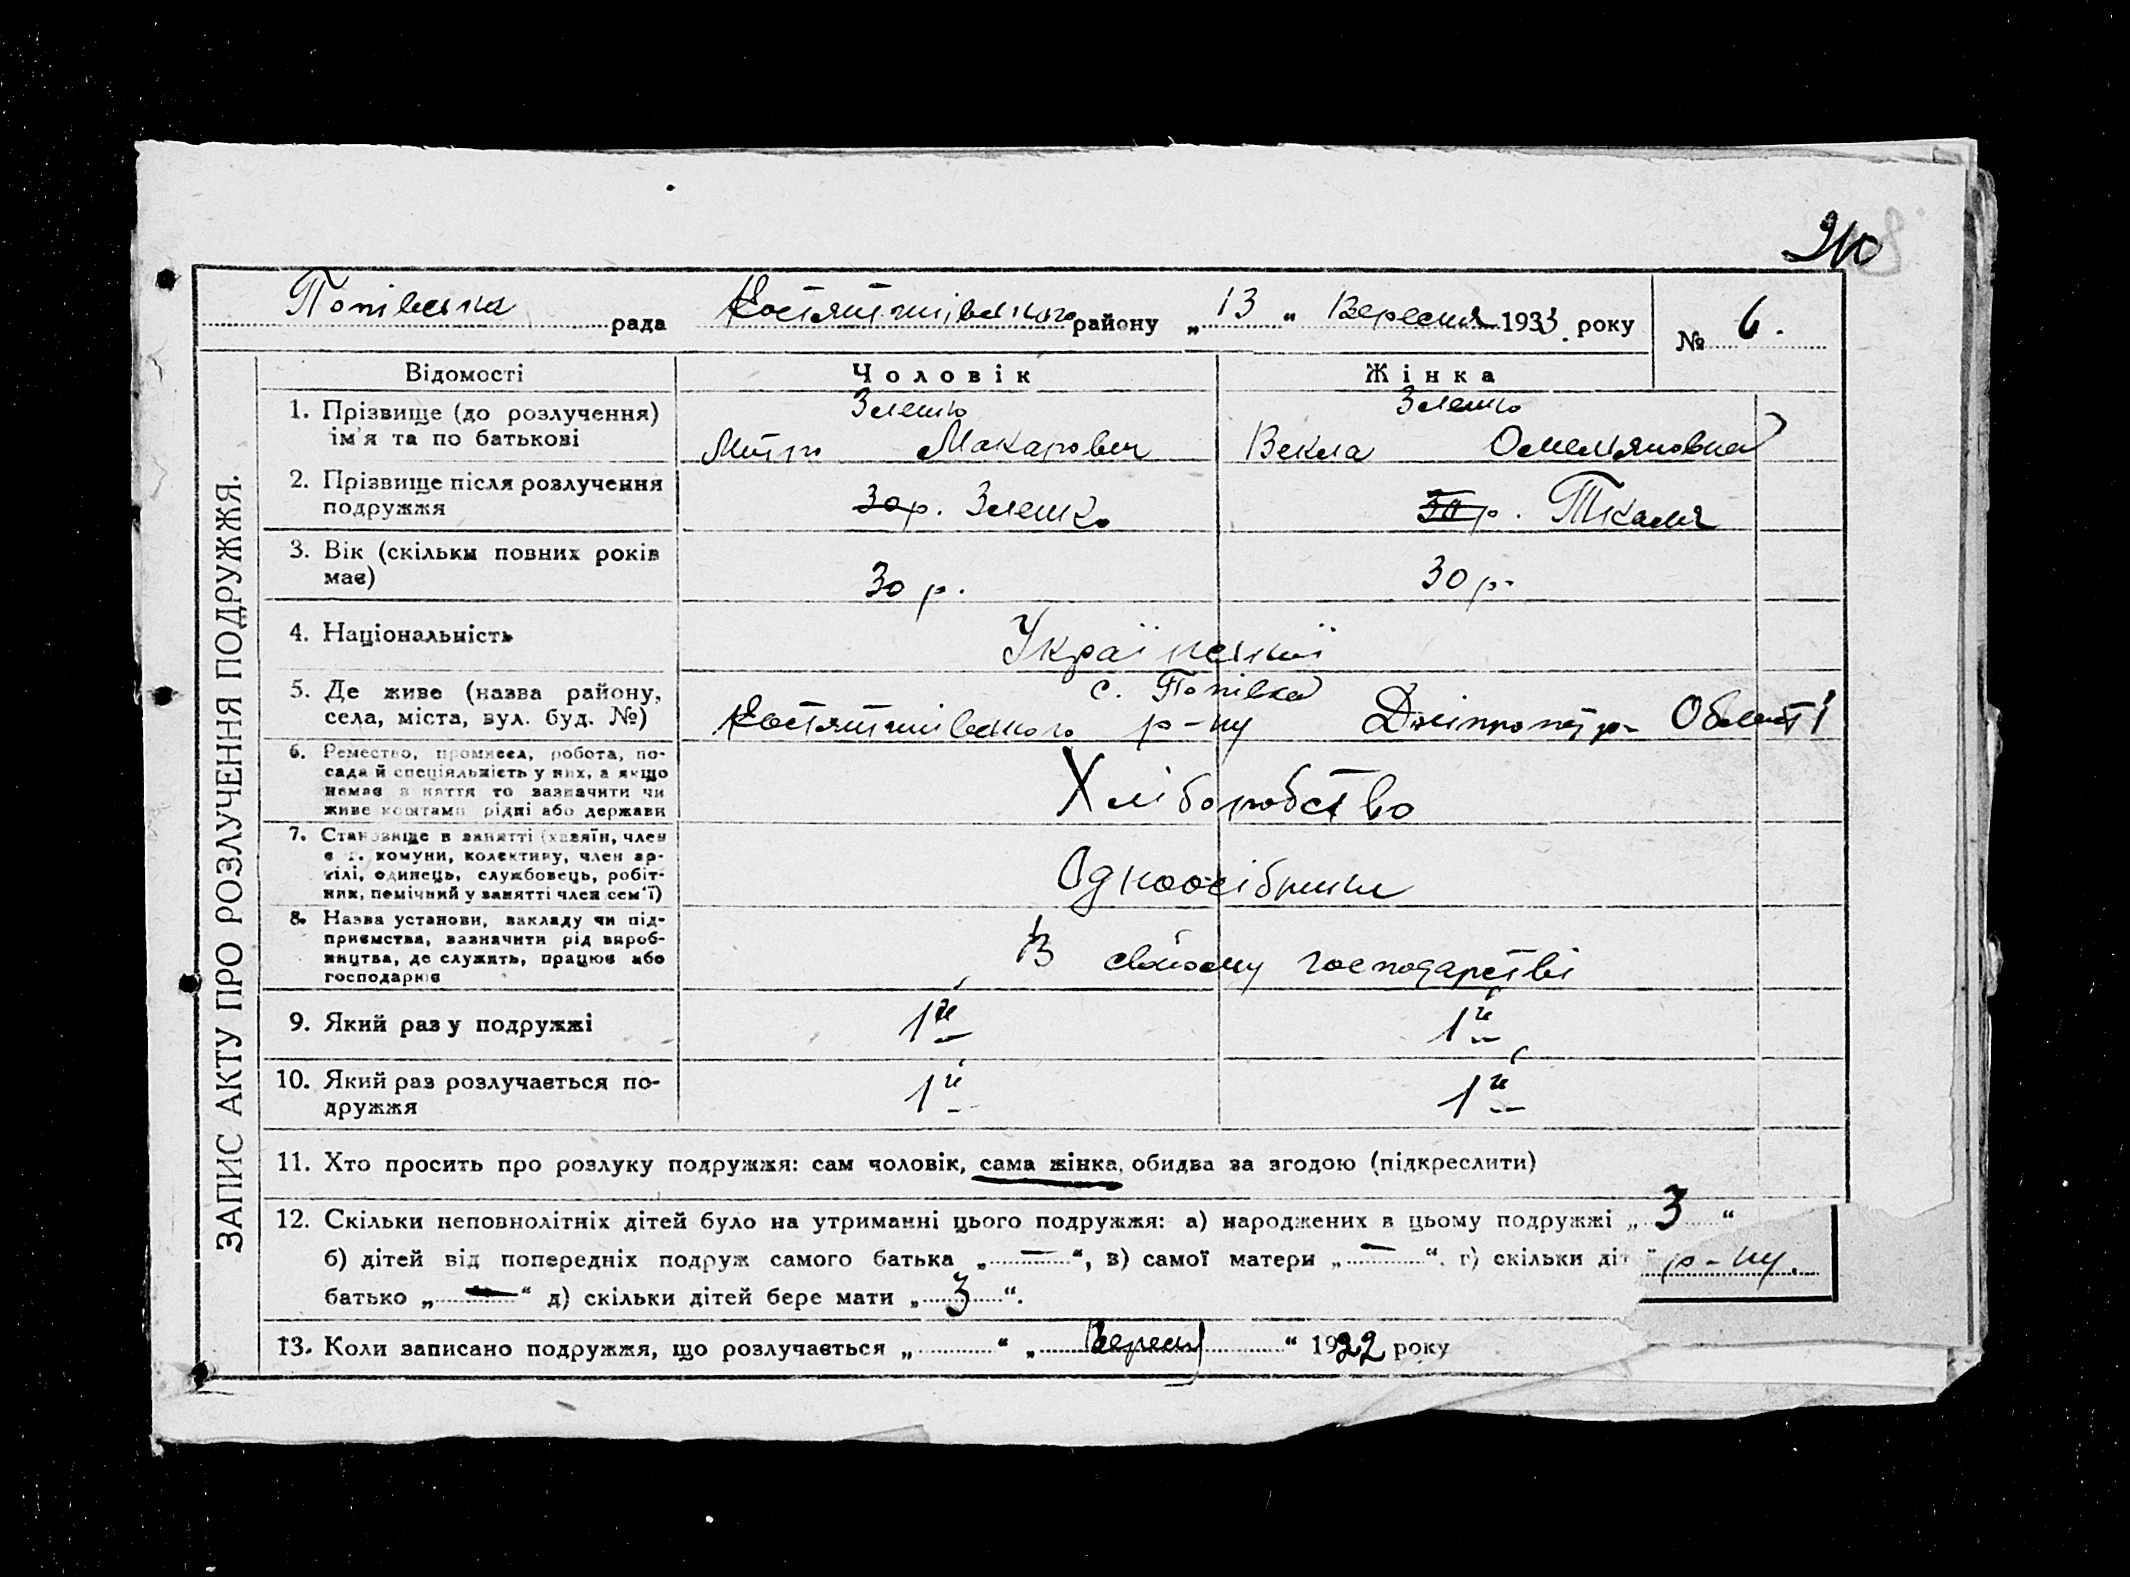 210
Попівська рада Костянтинівського району „ 13 “ Вересня 1933 року № 6.
ЗАПИС АКТУ ПРО РОЗЛУЧЕННЯ ПОДРУЖЖЯ.
Відомості Чоловік Жінка
1. Прізвище (до розлучення) Злешко Злешко
ім'я та по батькові Макарович Векла Омельяновна
2. Прізвище після розлучення
подружжя 30 р. Злешко 30 р. Ткаля
3. Вік (скільки повних років
має) 30 р. 30 р.
4. Національність Українські
5. Де живе (назва району, с. Попівка
села, міста, вул. буд. №) Костянтинівського р-ну Дніпропетр. Області
6. Ремество, промисел, робота, по-
сада й спеціяльність у них, а якщо
немає заняття то зазначити чи Хліборобство
живе коштами рідні або держави
7. Становище в занятті (хазяїн, член
с. г. комуни, колективу, член ар-
тілі, одинець, службовець, робіт- Одноосібники
ник, помічний у занятті член сем'ї)
8. Назва установи, закладу чи під-
приємства, зазначити рід вироб-
ництва, де служить, працює або В свойому господарстві
господарює
9. Який раз у подружжі 1й 1й
10. Який раз розлучається по- 1й 1й
дружжя
11. Хто просить про розлуку подружжя: сам чоловік, сама жінка, обидва за згодою (підкреслити)
12. Скільки неповнолітніх дітей було на утриманні цього подружжя: а) народжених в цьому подружжі „ 3 “
б) дітей від попередніх подруж самого батька „ — “, в) самої матери „ — “. г) скільки діт р-ну.
батько „ — “ д) скільки дітей бере мати „ 3 “.
13. Коли записано подружжя, що розлучається „ “ „ Вересня “ 1922 року